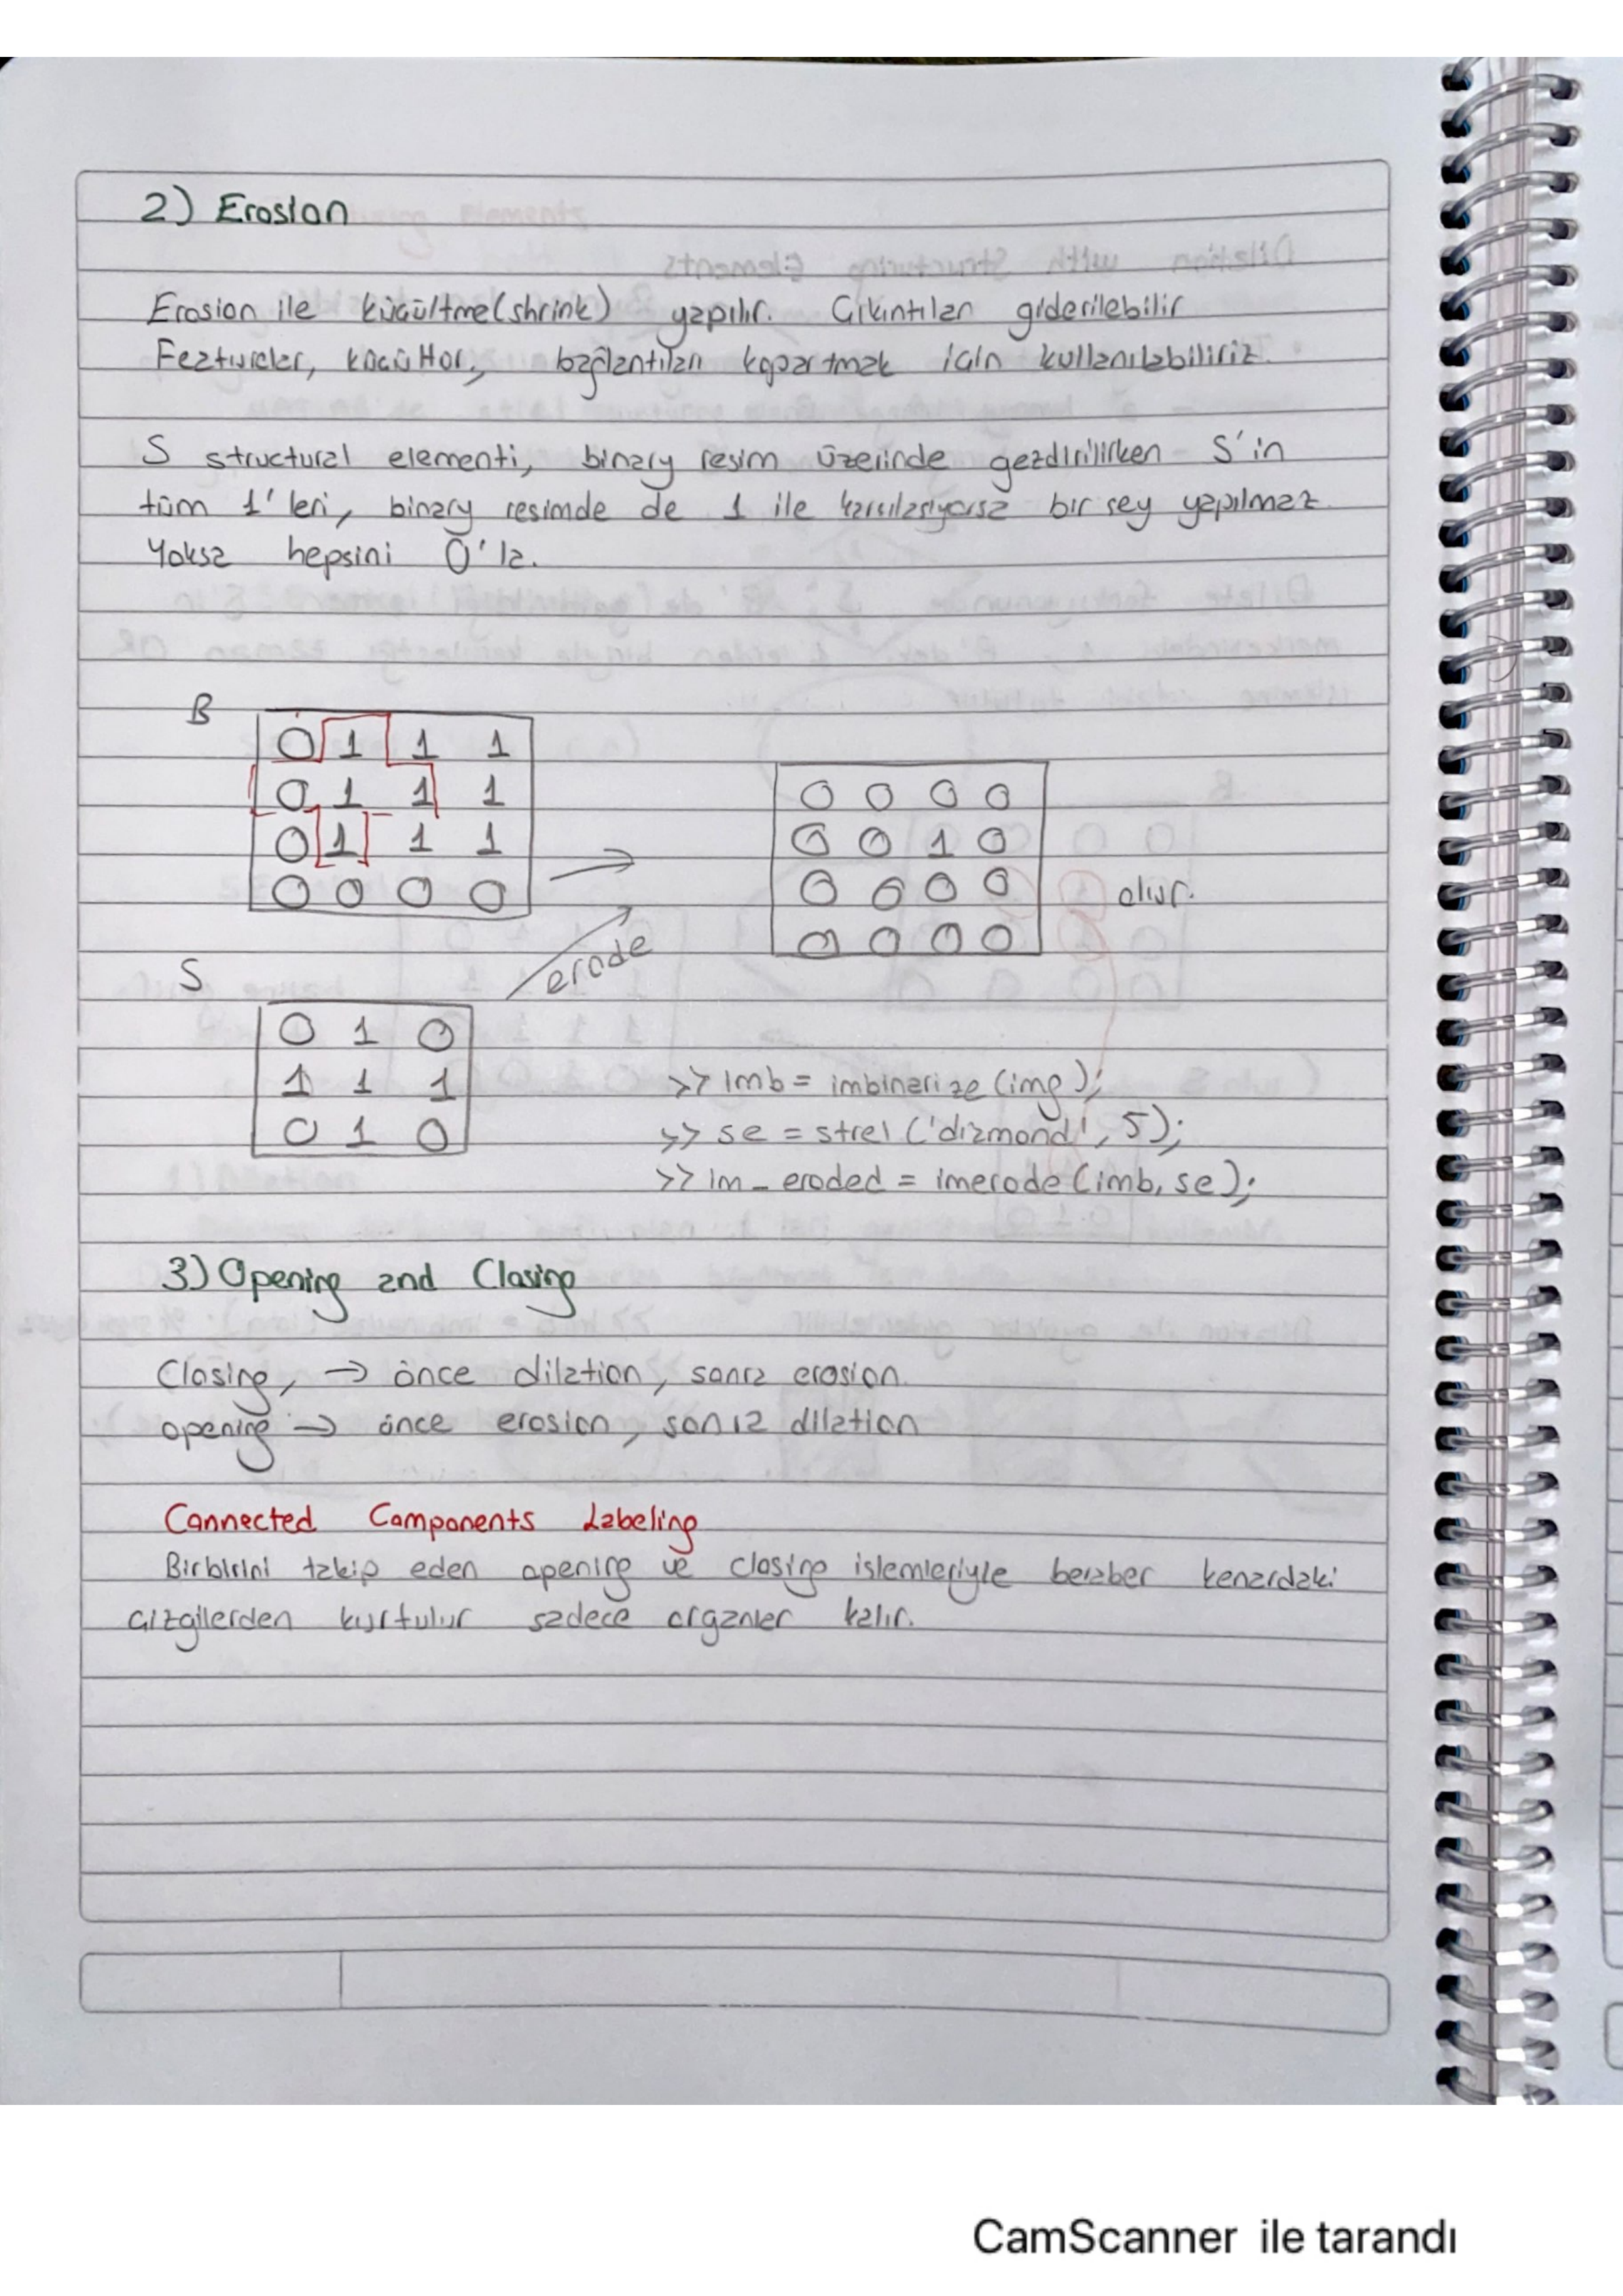 2) Erosion
Erosion ile küçültme(shrink) yapılır. Çıkıntıları giderilebilir
Featureler, küçültür, bağlantıları kopartmak için kullanılabiliriz.
S structural elementi, binary resim üzerinde gezdirilirken S'in
tüm 1'leri, binary resimde de 1 ile karşılaşıyorsa bir şey yapılmaz.
Yoksa hepsini 0'la.
B
0 1 1 1
0 1 1 1
0 1 1 1
0 0 0 0
0 0 0 0
0 0 1 0
0 0 0 0
0 0 0 0
olur.
erode
S
0 1 0
1 1 1
0 1 0
>> imb = imbinarize(img);
>> se = strel('diamond', 5);
>> im_eroded = imerode(imb, se);
3) Opening and Closing
Closing, → önce dilation, sonra erosion.
opening → önce erosion, sonra dilation
Connected Components Labeling
Birbirini takip eden opening ve closing işlemleriyle beraber kenardaki
çizgilerden kurtulur sadece organlar kalır.
CamScanner ile tarandı